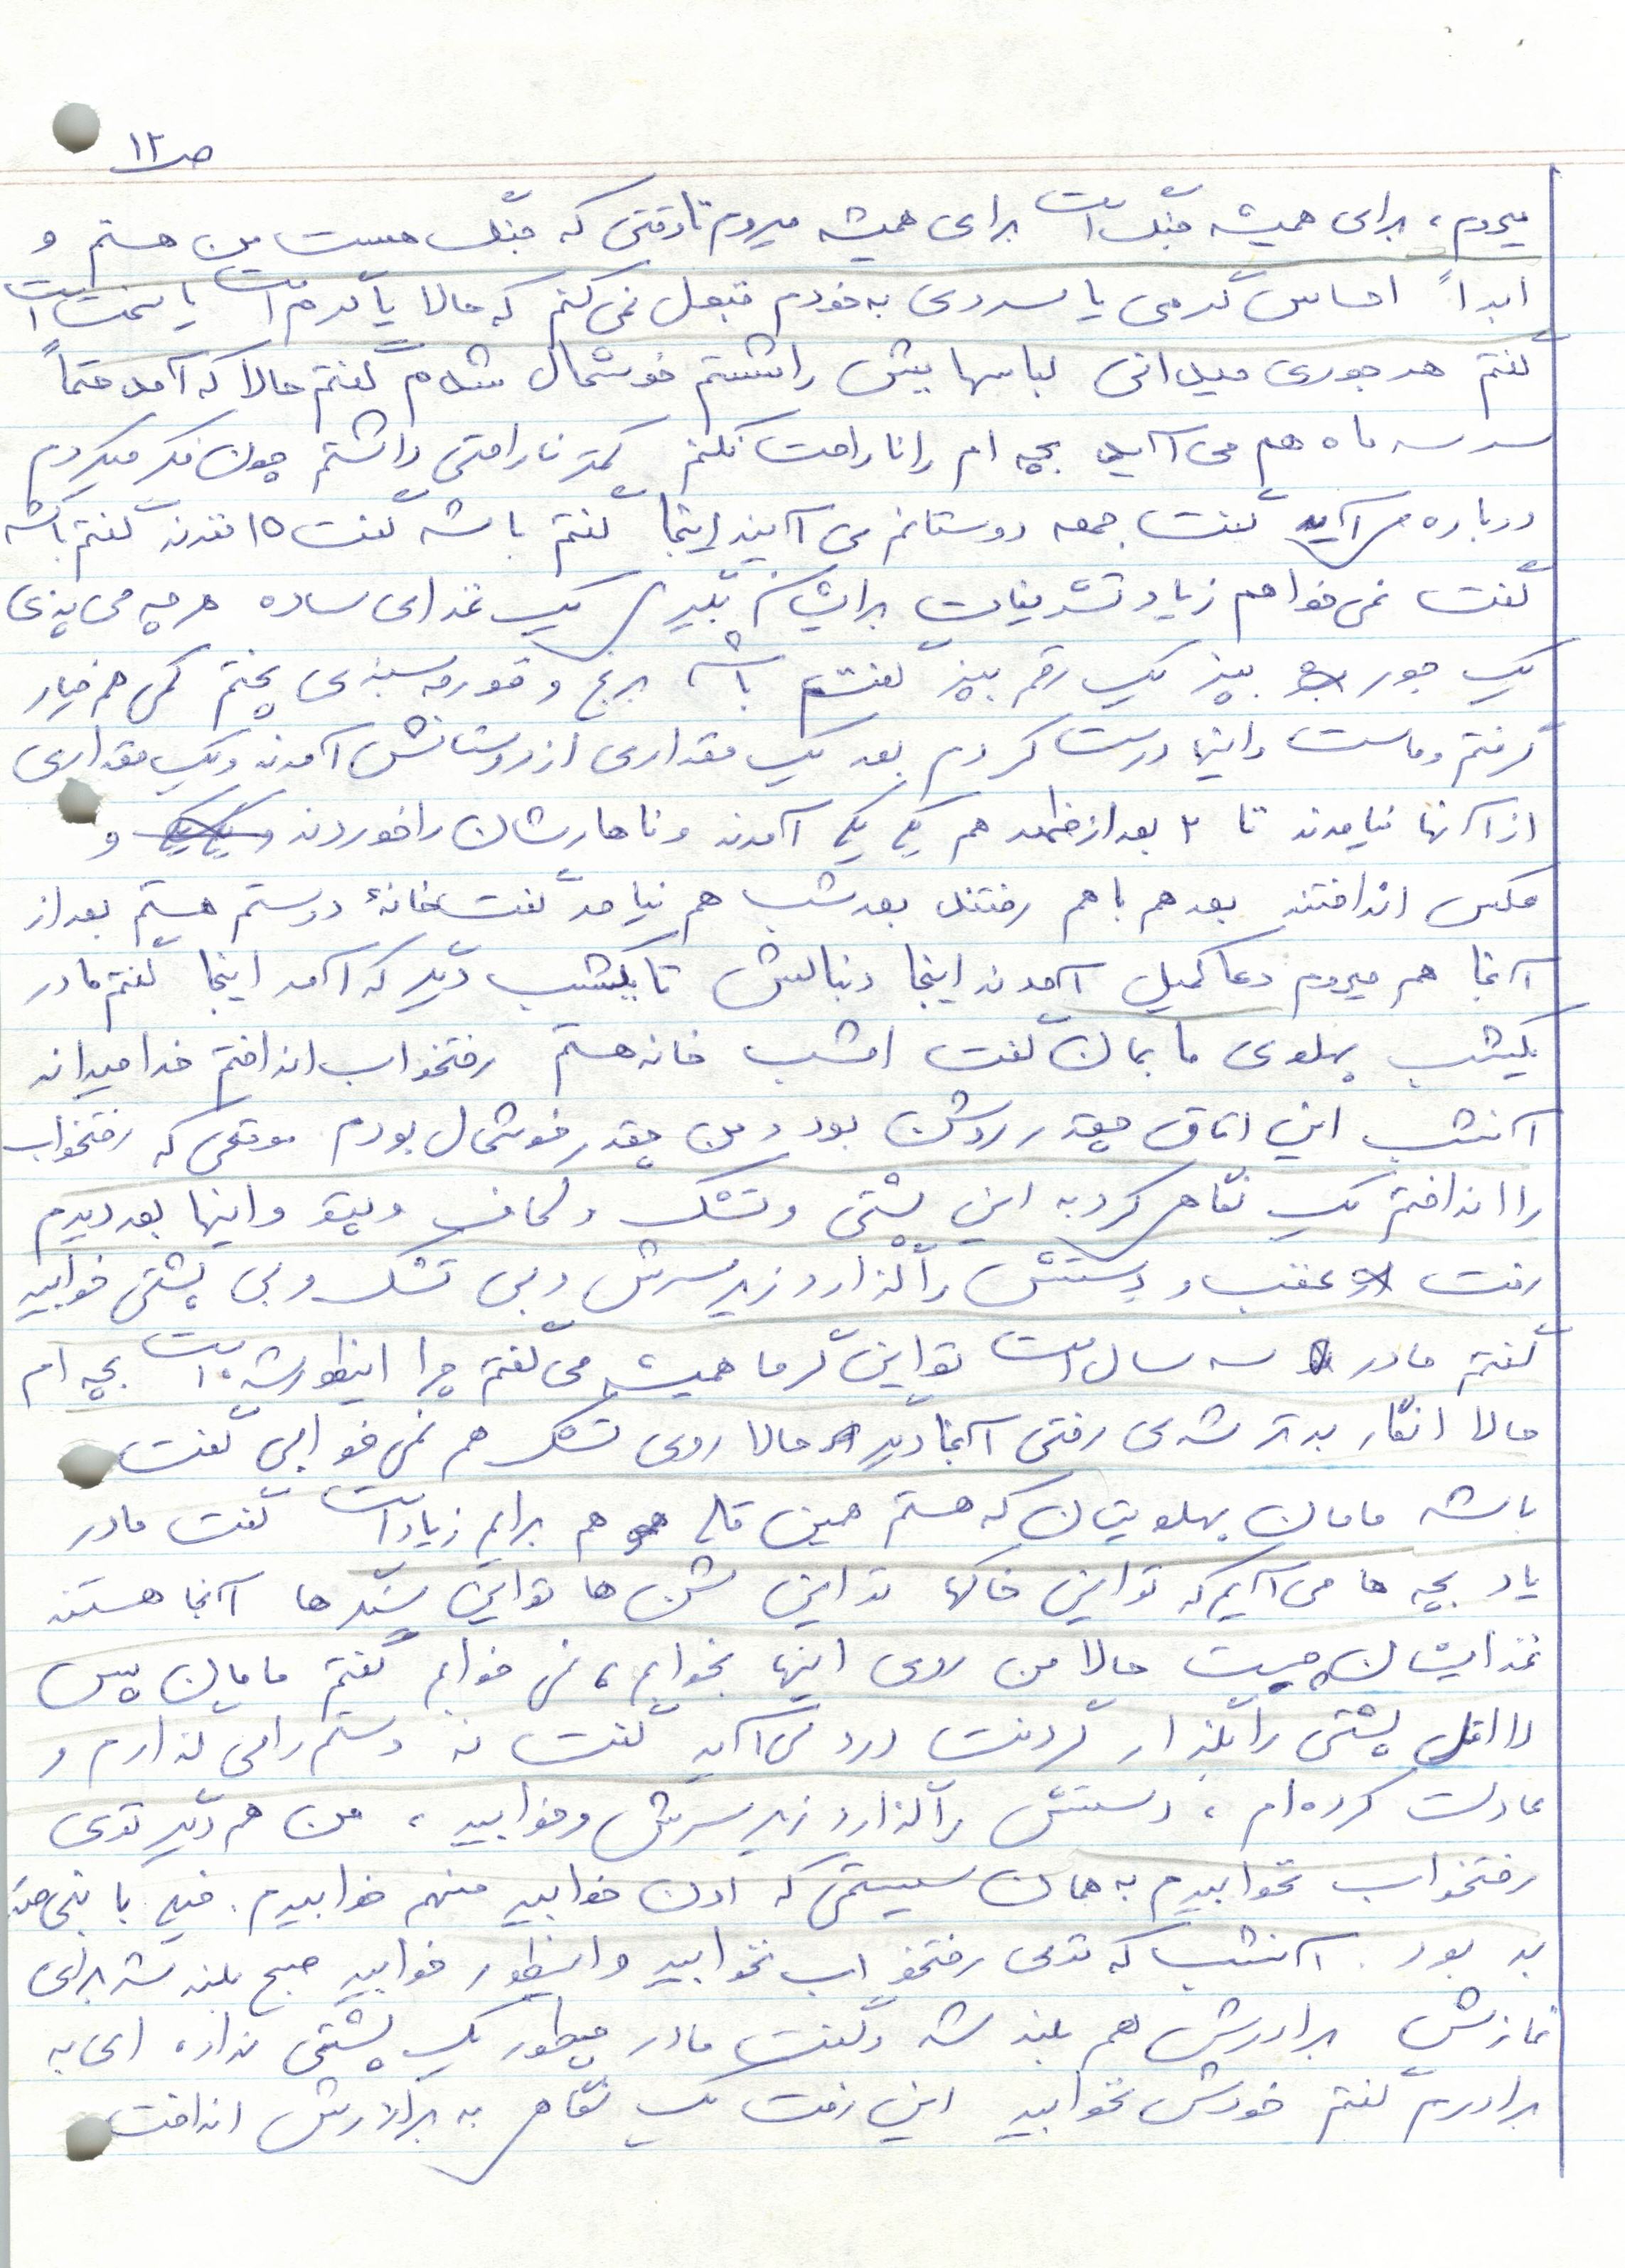 ص۱۲
میروم، برای همیشه جنگ است برای همیشه میروم تا وقتی که جنگ هست من هستم و
ابداً احساس گرمی یا سردی به خودم قبول نمی کنم که حالا یا گرم است یا سخت است
گفتم هر جوری میدانی لباسهایش را شستم خوشحال شدم گفتم حالا که آمد حتماً
سر سه ماه هم می آید بچه ام را ناراحت نکنم کمتر ناراحتی داشتم چون فکر میکردم
درباره می آید گفت جمعه دوستانم می آیند اینجا گفتم باشه گفت ۱۵ نفرند گفتم باشه
گفت نمی خواهم زیاد تشریفات برایشان بگیری یک غذای ساده هر چه می پزی
یک جور بپز یک رقم بپز گفتم باشه برنج و قورمه سبزی پختم کمی هم خیار
گرفتم و ماست و اینها درست کردم بعد یک مقداری از دوستانش آمدند و یک مقداری
از آنها نیامدند تا ۲ بعد از ظهر هم یکی یکی آمدند و ناهارشان را خوردند و
عکس انداختند بعد هم با هم رفتند بعد شب هم نیامد گفت خانهٔ دوستم هستم بعد از
آنجا هم میروم دعا کمیل آمدند اینجا دنبالش تا یکشب دیگر که آمد اینجا گفتم مادر
یکشب پهلوی ما بمان گفت امشب خانه هستم رفتخواب انداختم خدا میداند
آنشب این اتاق چقدر روشن بود و من چقدر خوشحال بودم موقعی که رفتخواب
را انداختم یک نگاهی کرد به این پشتی و تشک و لحاف و پتو و اینها بعد دیدم
رفت عقب و دستش را گذارد زیر سرش و بی تشک و بی پشتی خوابید
گفتم مادر سه سال است تو این گرما همیشه می گفتم چرا اینطور شده است بچه ام
حالا انگار بدتر شدی رفتی آنجا دیگر حالا روی تشک هم نمی خوابی گفت
باشه مامان پهلویتان که هستم همین قالی هم برایم زیاد است گفت مادر
یاد بچه ها می آیم که تو این خاکها تو این شن ها تو این سنگر ها آنجا هستند
غذایشان چیست حالا من روی اینها بخوابم، نمی خوابم گفتم مامان پس
لااقل پشتی را بگذار گردنت درد می آید گفت نه دستم را می گذارم و
عادت کرده ام، دستش را گذارد زیر سرش و خوابید، من هم دیگر توی
رفتخواب نخوابیدم به همان سیستمی که اون خوابید منهم خوابیدم. خیلی با
بد بود. آنشب که توی رفتخواب نخوابید و اینطور خوابید صبح بلند شد برای
نمازش برادرش هم بلند شد و گفت مادر چطور یک پشتی نداده ای به
برادرم گفتم خودش نخوابید این رفت یک نگاهی به برادرش انداخت